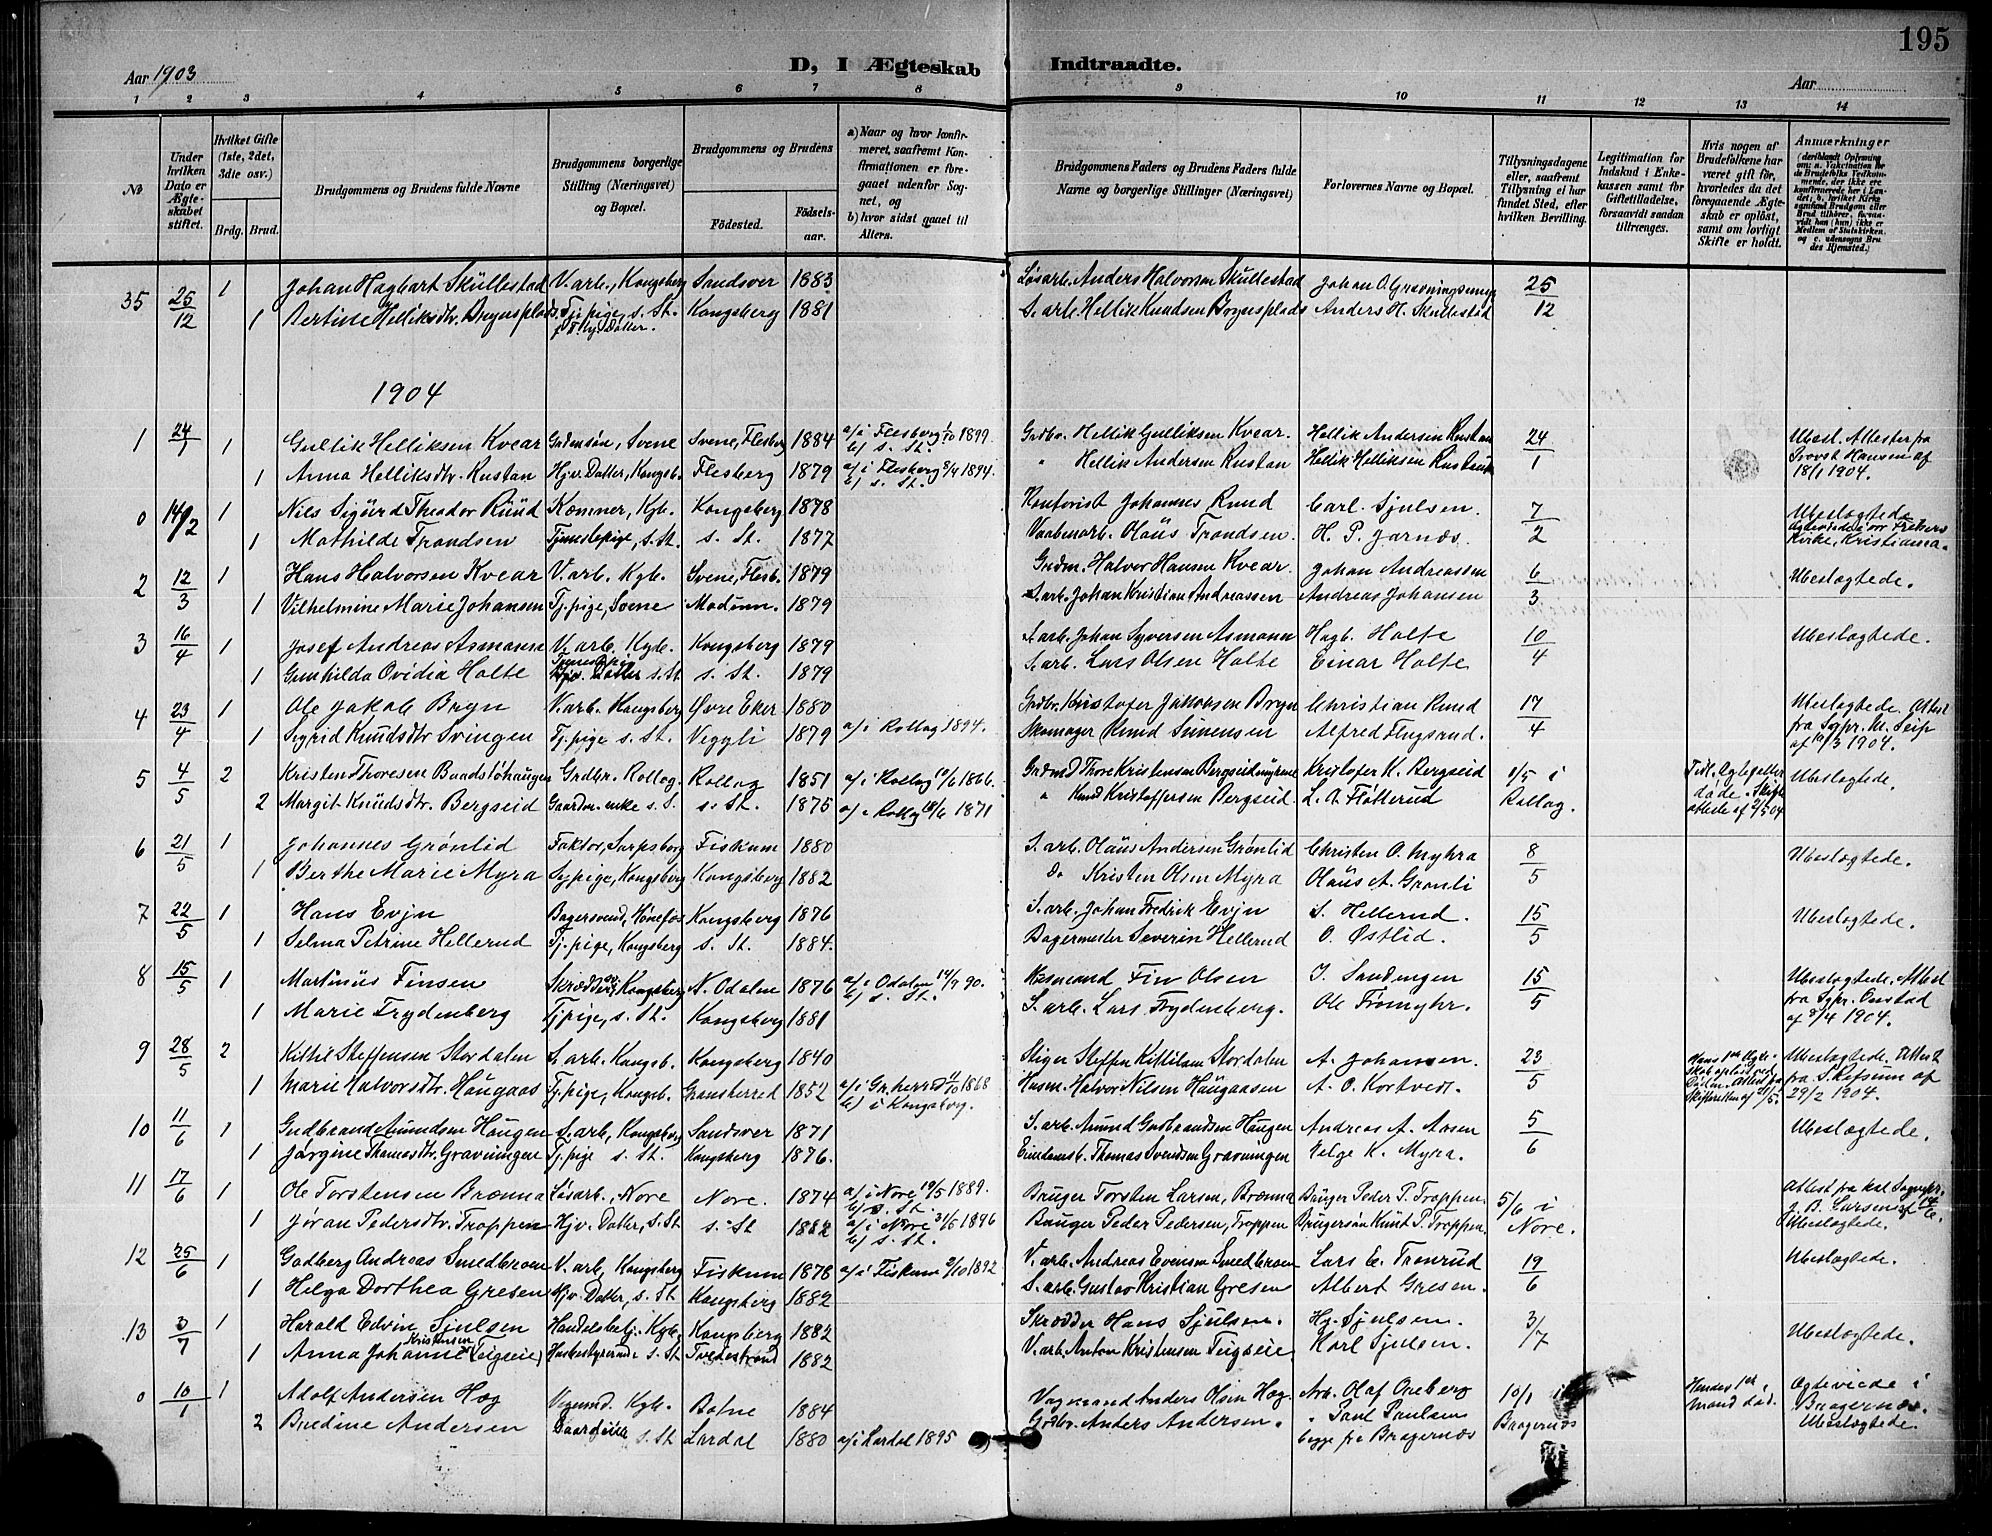 195
D, I Ægteskab Indtraadte.
Aar 1903
Aar
1 2 3 4 5 6 7 8 9 10 11 12 13 14
No
Under hvilken Dato er Ægteskabet stiftet.
Hvilket Gifte (1ste, 2det, 3die osv.)
Brdg. Brud.
Brudgommens og Brudens fulde Navne
Brudgommens borgerlige Stilling (Næringsvei) og Bopæl.
Brudgommens og Brudens
Fødested.
Fødsels-aar.
a) Naar og hvor konfirmeret, saafremt Konfirmationen er foregaaet udenfor Sognet, og
b) hvor sidst gaaet til Alters.
Brudgommens Faders og Brudens Faders fulde Navne og borgerlige Stillinger (Næringsvei)
Forlovernes Navne og Bopæl.
Tillysningsdagene eller, saafremt Tillysning ei har fundet Sted, efter hvilken Bevilling.
Legitimation for Indskud i Enkekassen samt for Giftetilladelse, forsaavidt saadan tiltrænges.
Hvis nogen af Brudefolkene har været gift før, hvorledes da det foregaaende Ægteskab er opløst, samt om lovligt Skifte er holdt.
Anmærkninger
35 25/12 1 Johan Hagbart Skullestad V. arb., Kongsberg Sandsver 1883 Løsarb. Anders Halvorsen Skullestad Johan O. 25/12
1 Bertine Helliksdtr. Brynsplads Tj.pige, s. St. Kongsberg 1881 S. arb. Hellik Knudsen Brynsplads Anders H. Skullestad
1904
1 24/1 1 Gullik Helliksen Kvear Gaardmansøn, Svene Svene, Flesberg 1884 a/ i Flesberg 1/10 1899. b/ s. St. Grdbr. Hellik Gulliksen Kvear. Hellik Andersen Rustan 24/1 Ubesl. Attester fra Provst Hansen af 18/1 1904.
1 Anna Helliksdtr. Rustan Hjv. Datter, Kongsb. Flesberg 1879 a/ i Flesberg 8/4 1894. b/ s. St. " Hellik Andersen Rustan Hellik Helliksen Rustan
0 14/2 1 Nils Sigurd Theodor Ruud Kæmner, Kgb. Kongsberg 1878 Kontorist Johannes Ruud Carl Sjulsen. 7/2 Ubeslægtede Kirke, Kristiania.
1 Mathilde Trondsen Tjenestepige, s. St. s. St. 1877 Vaabenarb. Olaus Trondsen. H. P. Jarnæs.
2 12/3 1 Hans Halvorsen Kvear V. arb. Kgb. Svene, Flesb. 1879 Grdm. Halvor Hansen Kvear. Johan Andreassen 6/3 Ubeslægtede.
1 Vilhelmine Marie Johansen Tj. pige, Svene Modum. 1879 S. arb. Johan Kristian Andreassen Andreas Johansen
3 16/4 1 Josef Andreas Asmann V. arb. Kgb. Kongsberg 1879 S. arb. Johan Syversen Asmann Hagb. Holte 10/4 Ubeslægtede.
1 Gunhilda Ovidia Holte Tjenestepige s. St. s. St. 1879 S. arb. Lars Olsen Holte Einar Holte
4 23/4 1 Ole Jakob Bryn V. arb. Kongsberg Øvre Eker 1880 Grdbr. Kristofer Jakobsen Bryn Christian Ruud 17/4 Ubeslægtede. Attest fra Sgpr. M. Seip af 19/3 1904.
1 Sigrid Knudsdtr Svingen Tj. pige s. St. Veggli 1879 a/ i Rollag 1894. Skomager Knud Simensen Alfred Flugsrud.
5 4/5 2 Kristen Thoresen Baadslohaugen Grdbr. Rollag. Rollag 1851 a/ i Rollag 10/6 1866. Grdmd Thore Kristensen Bergseidmyrene Kristofer K. Bergseid 1/5 i Rollag. Tidl. Ægtefæller døde. Skifteattest af 2/5 04 Ubeslægtede.
2 Margit Knudsdtr. Bergseid Gaardm. enke s. S. s. St. 1875 a/ i Rollag 18/6 1871 " Knud Kristoffersen Bergseid. L. A. Fløtterud
6 21/5 1 Johannes Grønlid Faktor, Sarpsborg Fiskum 1880 S. arb. Olaus Andersen Grønlid Christen O. Myhra 8/5 Ubeslægtede.
1 Berthe Marie Myra Sypige, Kongsberg Kongsberg 1882 do Kristen Olsen Myra Olaus A. Grønli
7 22/5 1 Hans Evjn Bagersvend, Hønefos Kongsberg 1876 S. arb. Johan Fredrik Evjn S. Hellerud. 15/5 Ubeslægtede.
1 Selma Petrine Hellerud Tj. pige, Kongsberg s. St. 1884. Bagermester Severin Hellerud O. Østlid.
8 15/5 1 Martinius Finsen Skrædder, Kongsberg N. Odalen 1876 a/ i Odalen 14/9 90. b/ s. St. Husmand Fin Olsen I. Sandengen 15/5 Ubeslægtede. Attest fra Sgpr. Onstad af 9/4 1904.
1 Marie Frydenberg Tjpige, s. St. Kongsberg 1881 S. arb. Lars Frydenberg. Ole Fromyhr.
9 28/5 2 Kittil Steffensen Stordalen S. arb. Kongsb. Kongsberg 1840 Stiger Steffen Kittilsen Stordalen A. Johansen. 23/5 Hans 1ste Ægteskab opløst ved Døden. Attest fra Skifteretten af 21/5. Ubeslægtede. Attest fra S. Refsum af 29/2 1904.
1 Marie Halvorsdtr. Haugaas Tj. pige, Kongsb. Gransherred 1852 a/ i Gr.herred 11/10 1868 b/ i Kongsberg. Husm. Halvor Nilsen Haugaasen A. O. Kortvedt.
10 11/6 1 Gudbrand Amundsen Haugen S. arb., Kongsberg Sandsver 1871 S. arb. Amund Gudbrandsen Haugen Andreas A. Aasen 5/6 Ubeslægtede.
1 Jørgine Thomasdtr. Gravningen Tj. pige s. St. Kongsberg 1876. Eiendomsb. Thomas Svendsen Gravningen Helge K. Myra.
11 17/6 1 Ole Torstensen Brænna Løsarb., Nore Nore. 1874 a/ i Nore 19/5 1889. b/ s. St. Bruger Torsten Larsen, Brænna Bruger Peder P. Troppen. 5/6 i Nore. Attest fra kal. Sognepr. J. B. Larsen af 14/6. Ubeslægtede.
1 Jøran Pedersdtr. Troppen Hjv. Datter, s. St s. St 1882 a/ i Nore 31/5 1896 b/ s. St. Bruger Peder Pedersen, Troppen Brugersøn Knut P. Troppen.
12 25/6 1 Gudberg Andreas Smedbroen V. arb., Kongsberg Fiskum 1878 a/ i Fiskum 2/10 1892 V. arb. Andreas Evensen Smedbroen Lars E. Tronrud 19/6 Ubeslægtede.
1 Helga Dorthea Gresen Hjv. Datter, s. St Kongsberg 1882 S. arb. Gustav Kristian Gresen Albert Gresen.
13 3/7 1 Harald Edvin Sjulsen Handelsbetj. Kgb. Kongsberg 1882 Skrædder Hans Sjulsen. Hg. Sjulsen. 3/7 Ubeslægtede.
1 Anna Johanne Kristensen (Teigseie) Husbestyrerinde s. St Tvedestrand 1882 V. arb. Anton Kristensen Teigseie Karl Sjulsen.
0 10/1 1 Adolf Andersen Hæg Vognmd. Kgb. Botne 1884 Vognmand Anders Olsen Hæg. Arb. Olaf Omberg 10/1 i Bragernæs Hendes 1ste mand død. Ægteviede i Bragernæs. Ubeslægtede.
2 Bredine Andersen s. St Lardal 1880 a/ i Lardal 1895 Grdbr. Anders Andersen. " Paul Paulsen begge fra Bragernæs